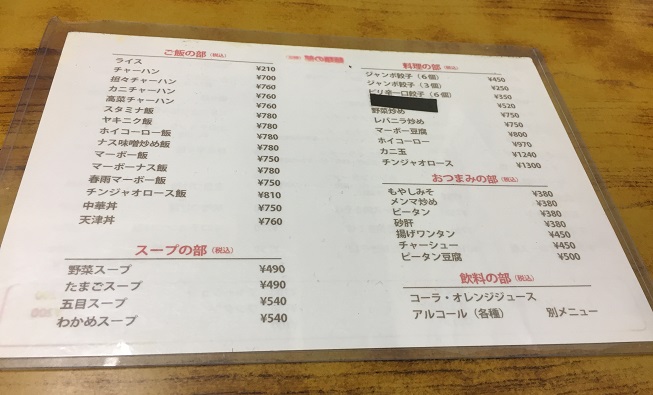 ご飯の部（税込）
ライス ¥210
チャーハン ¥700
担々チャーハン ¥760
カニチャーハン ¥760
高菜チャーハン ¥760
スタミナ飯 ¥780
ヤキニク飯 ¥780
ホイコーロー飯 ¥780
ナス味噌炒め飯 ¥780
マーボー飯 ¥750
マーボーナス飯 ¥780
春雨マーボー飯 ¥750
チンジャオロース飯 ¥810
中華丼 ¥750
天津丼 ¥760
スープの部（税込）
野菜スープ ¥490
たまごスープ ¥490
五目スープ ¥540
わかめスープ ¥540
料理の部（税込）
ジャンボ餃子（６個） ¥450
ジャンボ餃子（３個） ¥250
ピリ辛一口餃子（６個） ¥350
¥520
野菜炒め ¥750
レバニラ炒め ¥750
マーボー豆腐 ¥800
ホイコーロー ¥970
カニ玉 ¥1240
チンジャオロース ¥1300
おつまみの部（税込）
もやしみそ ¥380
メンマ炒め ¥380
ピータン ¥380
砂肝 ¥380
揚げワンタン ¥450
チャーシュー ¥450
ピータン豆腐 ¥500
飲料の部（税込）
コーラ・オレンジジュース
アルコール（各種） 別メニュー